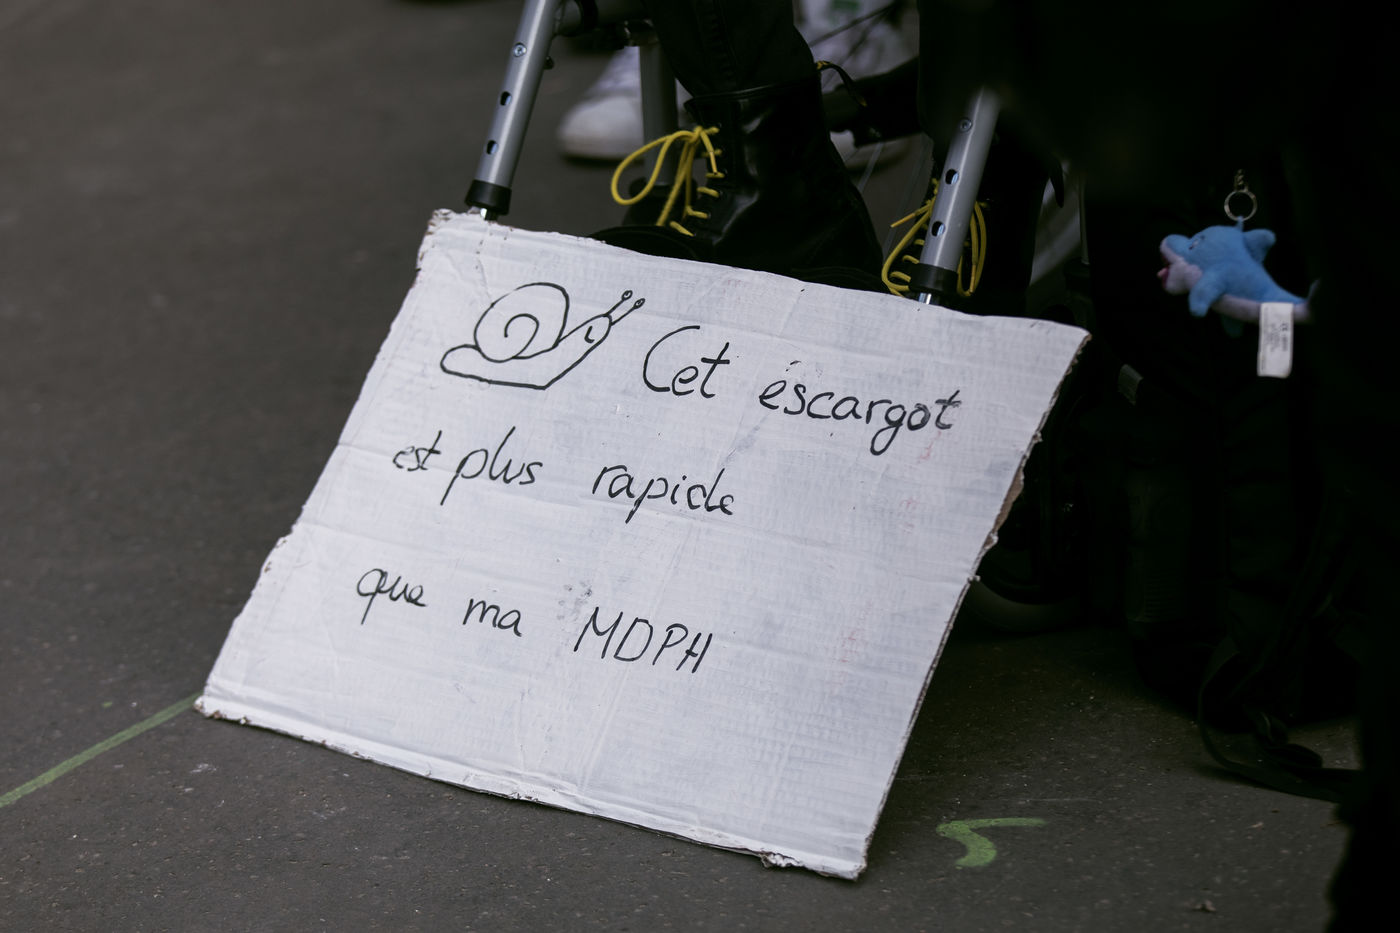 Cet éscargot
est plus rapide
que ma MDPH